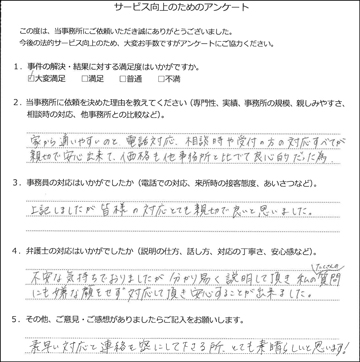 サービス向上のためのアンケート
この度は、当事務所にご依頼いただき誠にありがとうございました。
今後の法的サービス向上のため、大変お手数ですがアンケートにご協力ください。
1．事件の解決・結果に対する満足度はいかがですか。
☑大変満足 □満足 □普通 □不満
2．当事務所に依頼を決めた理由を教えてください（専門性、実績、事務所の規模、親しみやすさ、
相談時の対応、他事務所との比較など）。
家から通いやすいのと電話対応、相談時や受付の方の対応すべてが
親切で安心出来て、価格も他事務所と比べて良心的だった為
3．事務員の対応はいかがでしたか（電話での対応、来所時の接客態度、あいさつなど）。
上記しましたが皆様の対応とても親切で良いと思いました。
4．弁護士の対応はいかがでしたか（説明の仕方、話し方、対応の丁寧さ、安心感など）。
不安な気持ちでおりましたが分かり易く説明して頂き私の質問
にも嫌な顔をせず対応して頂き安心することが出来ました。
5．その他、ご意見・ご感想がありましたらご記入をお願いします。
素早い対応と連絡を密にして下さる所、とても素晴らしいと思います!